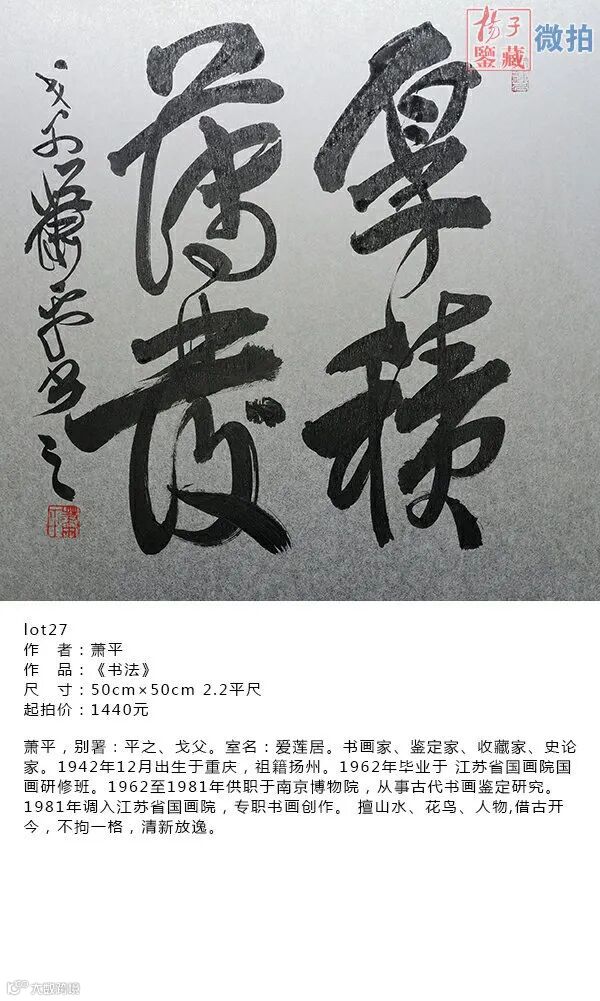 揚子
鑒藏
微拍
厚積
薄發
蕭平書之
lot27
作 者：萧平
作 品：《书法》
尺 寸：50cm×50cm 2.2平尺
起拍价：1440元
萧平，别署：平之、戈父。室名：爱莲居。书画家、鉴定家、收藏家、史论
家。1942年12月出生于重庆，祖籍扬州。1962年毕业于 江苏省国画院国
画研修班。1962至1981年供职于南京博物院，从事古代书画鉴定研究。
1981年调入江苏省国画院，专职书画创作。 擅山水、花鸟、人物,借古开
今，不拘一格，清新放逸。